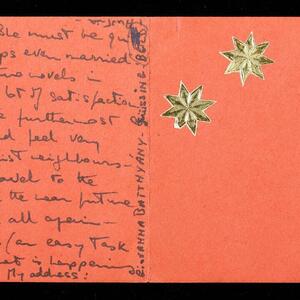 ble must be qui
ps even married
two novels in
lot of satisfaction
e furthermost
d feel very
ist neighbours -
avel to the
the near future
all again -
(an easy task
at is happening
My address:
BATTHYANY - Güssing